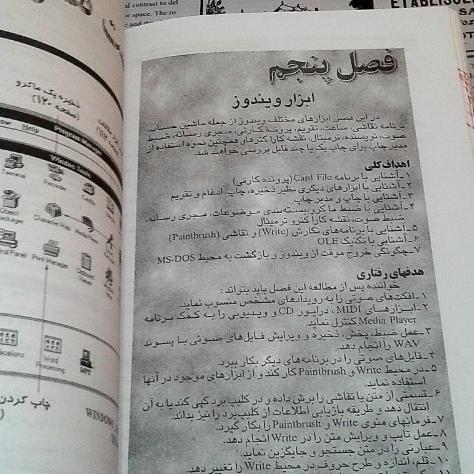 فصل پنجم
ابزار ویندوز
در این فصل ابزارهای مختلف ویندوز از جمله ماشین حساب،
برنامه نقاشی، ساعت، تقویم، پرونده کارتی، مجری رسانه، ضبط
صوت، نویسنده، ترمینال، نقشه کاراکترها و همچنین نحوه استفاده از
مدیر چاپ برای چاپ یک یا چند فایل بررسی خواهند شد.
اهداف کلی
۱ـ آشنایی با برنامه Card File (پرونده کارتی)
۲ـ آشنایی با ابزارهای دیگری نظیر ذخیره، چاپ، ادغام و تقویم
۳ـ آشنایی با چاپ و مدیر چاپ
۴ـ آشنایی با ضبط ماکرو، بسته‌بندی موضوعات، مجری رسانه،
ضبط صوت، نقشه کاراکتر و ترمینال
۵ـ آشنایی با برنامه‌های نگارش (Write) و نقاشی (Paintbrush)
۶ـ آشنایی با تکنیک OLE
۷ـ چگونگی خروج موقت از ویندوز و بازگشت به محیط MS-DOS
هدفهای رفتاری
خواننده پس از مطالعه این فصل باید بتواند:
۱ـ افکت‌های صوتی را به رویدادهای مشخص منسوب نماید.
۲ـ ابزارهای MIDI، درایور CD و ویدیویی را به کمک برنامه
Media Player کنترل نماید.
۳ـ عمل ضبط، پخش، ذخیره و ویرایش فایل‌های صوتی با پسوند
WAV را انجام دهد.
۴ـ فایل‌های صوتی را در برنامه‌های دیگر بکار ببرد.
۵ـ در محیط Write و Paintbrush کار کند و از ابزارهای موجود در آنها
استفاده نماید.
۶ـ قسمتی از متن یا نقاشی را برش داده و در کلیپ برد کپی کند یا به آن
انتقال دهد و طریقه بازیابی اطلاعات از کلیپ برد را نیز بداند.
۷ـ فرمانهای منوی Write و Paintbrush را بکار گیرد.
۸ـ عمل تایپ و ویرایش متن را در Write انجام دهد.
۹ـ عبارتی را در متن جستجو و جایگزین نماید.
۱۰ـ قلم، اندازه و طرح حروف در محیط Write را تغییر دهد.
ذخیره یک ماکرو
(صفحه ۱۲۰)
Help
Program Manager
Windows Tools
Terminal
Recorder
Object
Packager
Character Map
Media Player
Print Manager
Word
Processing
چاپ کردن
WINDOWS
ETABLISSE